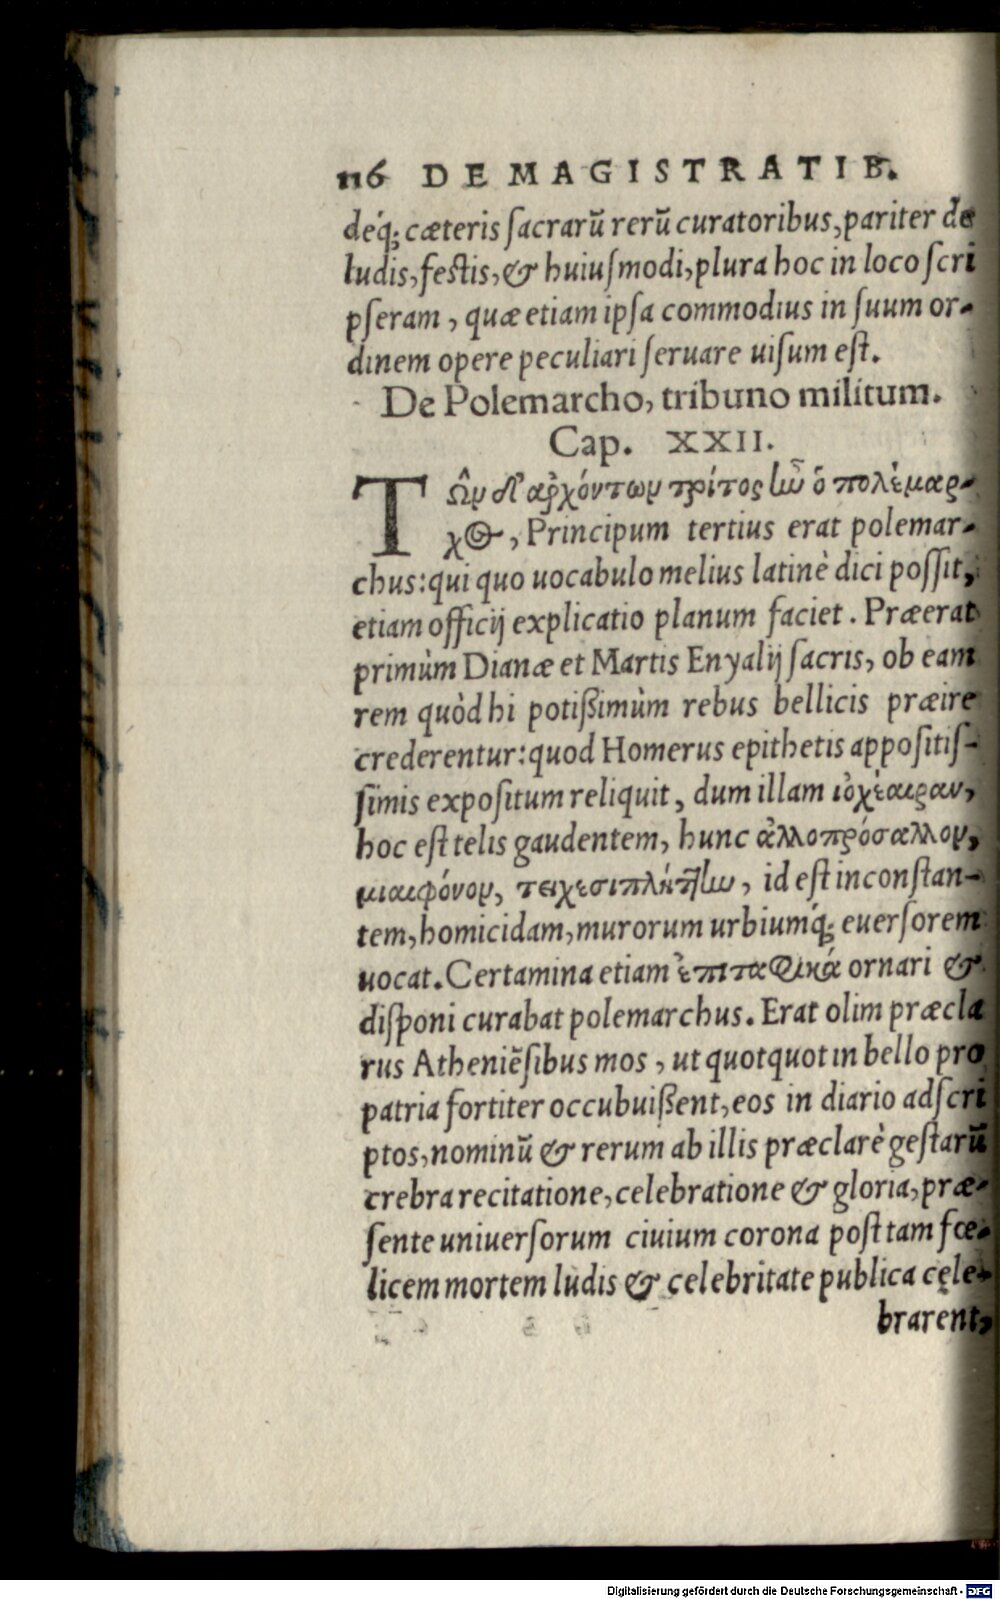 116 DE MAGISTRATIB.
déq́; cæteris ſacrarũ rerũ curatoribus, pariter de
ludis, feſtis, & huiuſmodi, plura hoc in loco ſcri
pſeram, quæ etiam ipſa commodius in ſuum or-
dinem opere peculiari ſeruare uiſum eſt.
De Polemarcho, tribuno militum.
Cap. XXII.
ΤΩ̂ν δ' ἀρχόντων τρίτος ἦν ὁ πολέμαρ-
χος, Principum tertius erat polemar-
chus: qui quo uocabulo melius latinè dici poſſit,
etiam officij explicatio planum faciet. Præerat
primùm Dianæ et Martis Enyalij ſacris, ob eam
rem quòd hi potißimùm rebus bellicis præire
crederentur: quod Homerus epithetis appoſitiſ-
ſimis expoſitum reliquit, dum illam ἰοχέαιραν,
hoc eſt telis gaudentem, hunc ἀλλοπρόσαλλον,
μιαιφόνον, τειχεσιπλήτην, id eſt inconſtan-
tem, homicidam, murorum urbiumq́; euerſorem
uocat. Certamina etiam ἐπιταφικά ornari &
diſponi curabat polemarchus. Erat olim præcla
rus Atheniẽſibus mos, ut quotquot in bello pro
patria fortiter occubuißent, eos in diario adſcri
ptos, nominũ & rerum ab illis præclarè geſtarũ
crebra recitatione, celebratione & gloria, præ-
ſente uniuerſorum ciuium corona poſt tam fœ-
licem mortem ludis & celebritate publica cęle-
brarent,
Digitalisierung gefördert durch die Deutsche Forschungsgemeinschaft - DFG